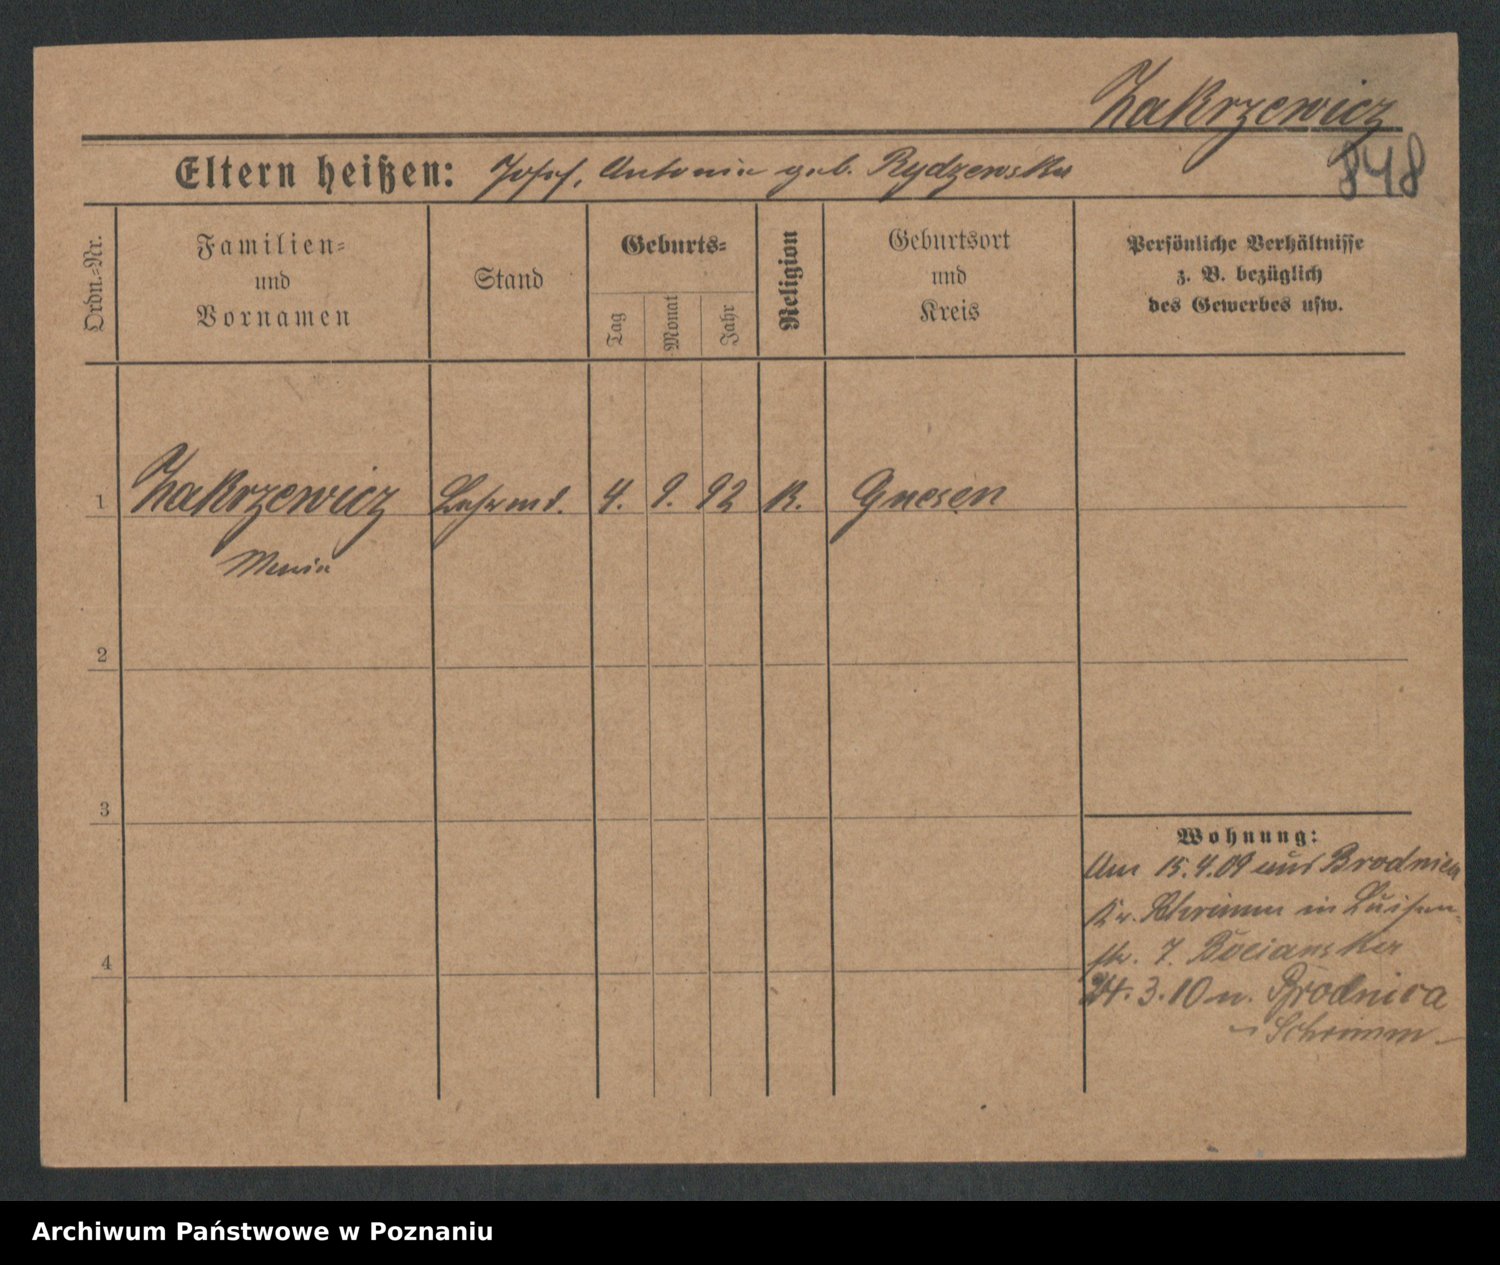 Zakrzewicz
848
Eltern heißen: Josef, Antonie geb. Rydzewska
Ordn.-Nr.
Familien-
und
Vornamen
Stand
Geburts-
Tag
Monat
Jahr
Religion
Geburtsort
und
Kreis
Persönliche Verhältnisse
z. B. bezüglich
des Gewerbes usw.
1 Zakrzewicz 4. 9. 92 K. Gnesen
Maria
2
3
4
Wohnung:
Am 15.4.09 aus Brodnica
Kr. Schrimm in Luisen-
str. 7.
3.10 n. Brodnica
Schrimm